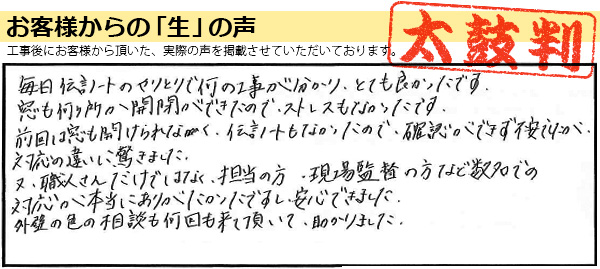 お客様からの「生」の声
工事後にお客様から頂いた、実際の声を掲載させていただいております。
太鼓判
毎日伝言ノートのやりとりで何の工事か分かり、とても良かったです。
窓も何ヶ所か開閉ができたので、ストレスもなかったです。
前回は窓も開けられなく、伝言ノートもなかったので、確認ができず不安でしたが、
対応の違いに驚きました。
又、職人さんだけではなく、担当の方、現場監督の方など数名での
対応が本当にありがたかったですし、安心できました。
外壁の色の相談も何回も来て頂いて、助かりました。